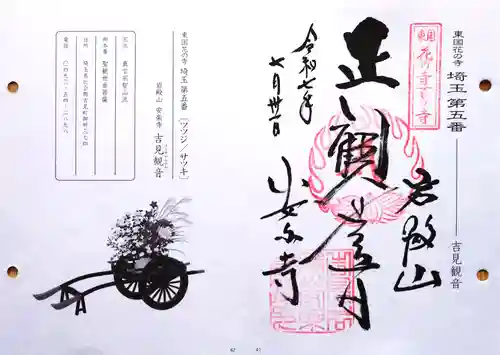 東国花の寺 埼玉 第五番
吉見観音
東国花の寺百ヶ寺
正観世音
岩殿山
安楽寺
令和七年
七月卅一日
東国花の寺 埼玉第五番 〔ツツジ/サツキ〕
岩殿山 安楽寺 吉見観音
宗派 真言宗智山派
御本尊 聖観世音菩薩
住所 埼玉県比企郡吉見町御所三七四
電話 〇四九三-五四-二八九八
42
41